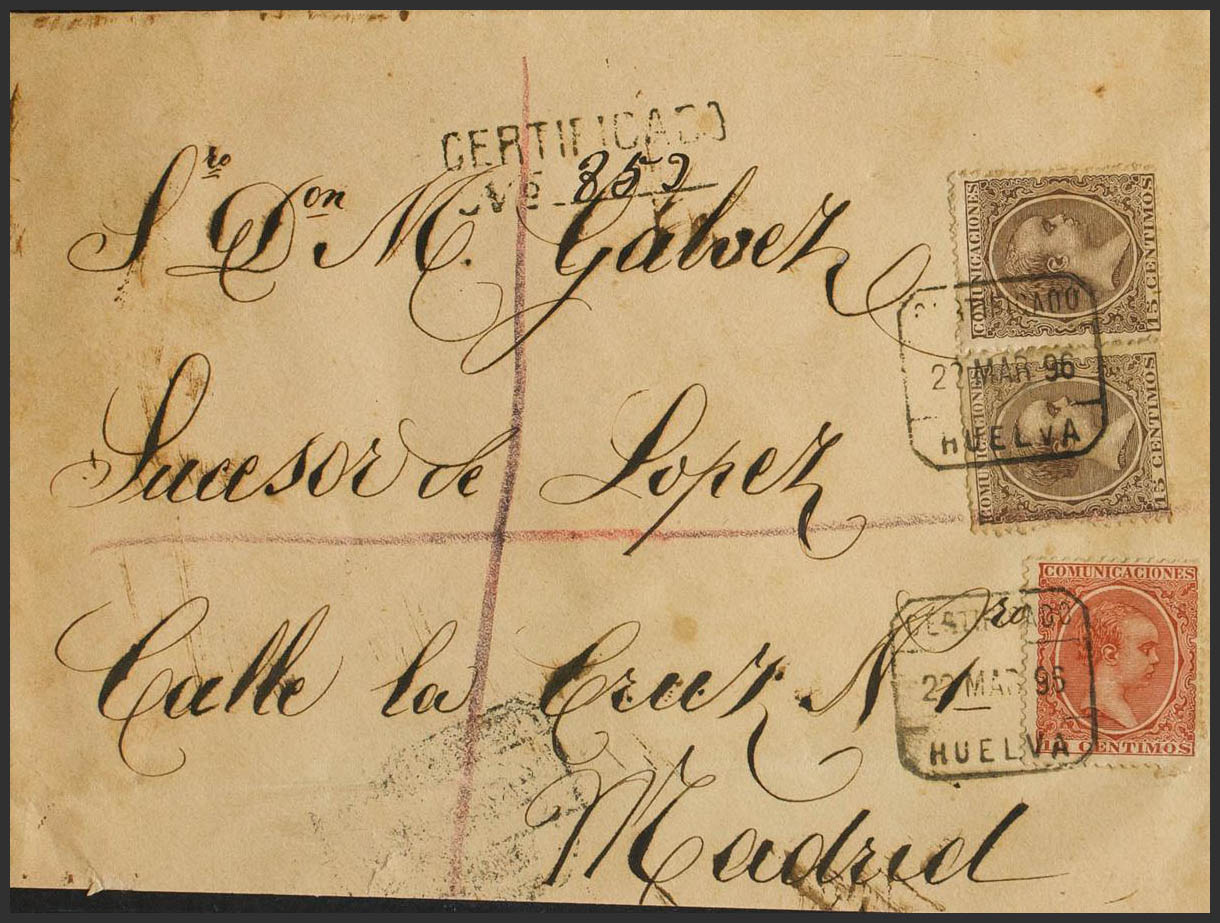 CERTIFICADO
Nº 852
Sro Don M. Gálvez
Sucesor de Lopez
Calle la Cruz Nro 1
Madrid
COMUNICACIONES
15 CENTIMOS
CERTIFICADO
22 MAR 96
HUELVA
COMUNICACIONES
15 CENTIMOS
COMUNICACIONES
10 CENTIMOS
CERTIFICADO
22 MAR 96
HUELVA